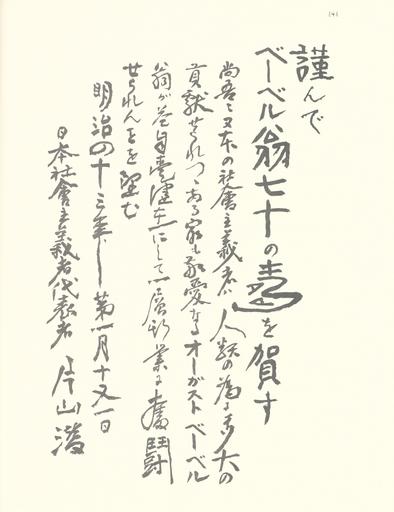 謹んで
ベーベル翁七十の壽を賀す
尚吾々日本の社會主義者が人類の爲に多大の
貢獻せられつゝある最も敬愛なるオーガストベーベル
翁が益自愛健在にして一層斯業に奮鬪
せられん を望む
明治四十三年 第一月十 日
日本社會主義者代表者 片山潜